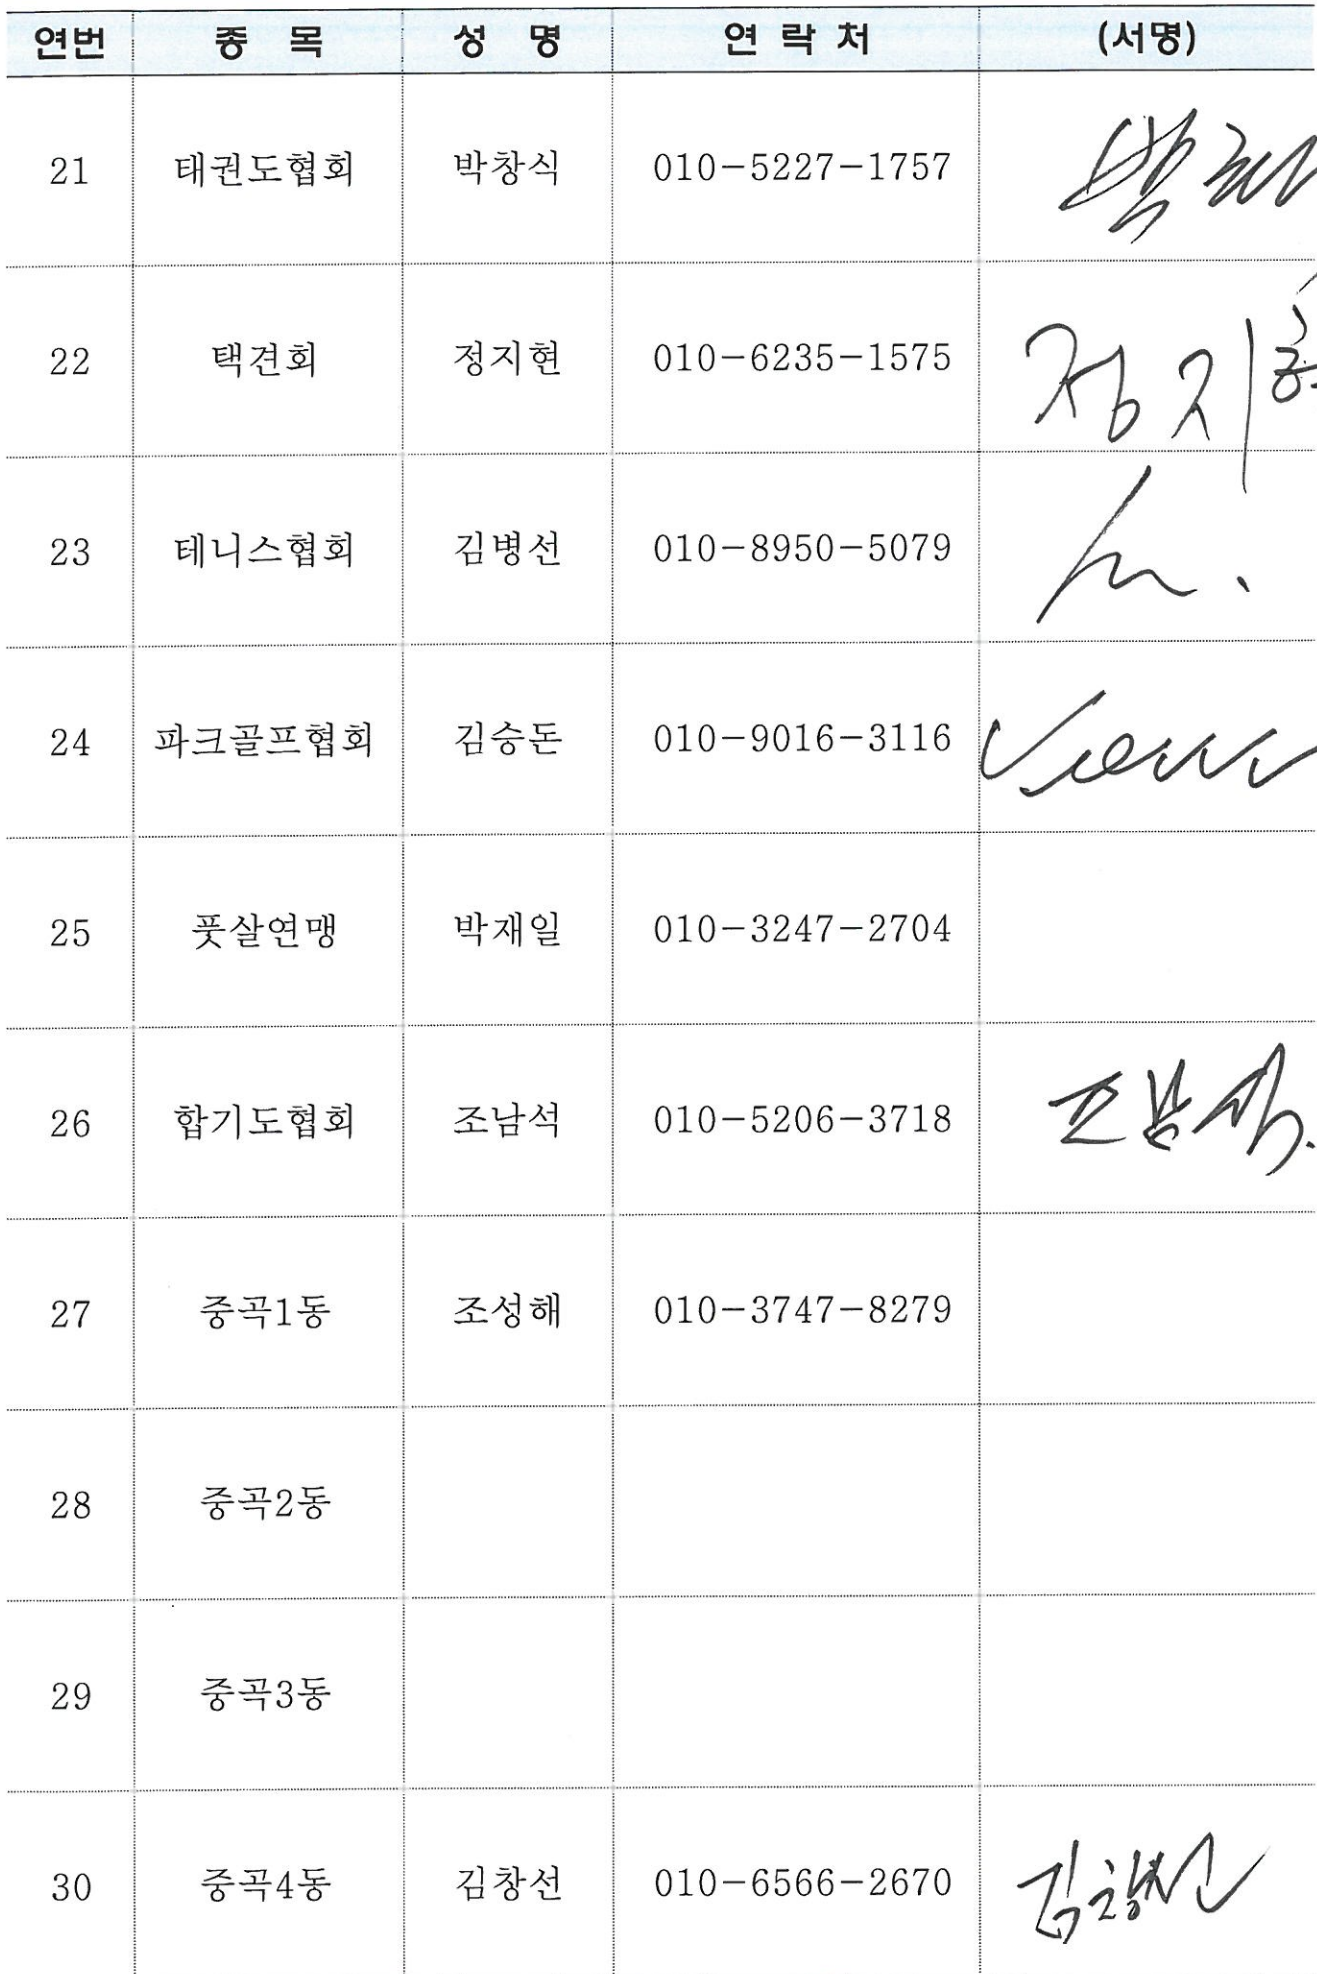 연번 종 목 성 명 연 락 처 (서명)
21 태권도협회 박창식 010-5227-1757
22 택견회 정지현 010-6235-1575 정지현
23 테니스협회 김병선 010-8950-5079
24 파크골프협회 김승돈 010-9016-3116
25 풋살연맹 박재일 010-3247-2704
26 합기도협회 조남석 010-5206-3718 조남석.
27 중곡1동 조성해 010-3747-8279
28 중곡2동
29 중곡3동
30 중곡4동 김창선 010-6566-2670 김창선